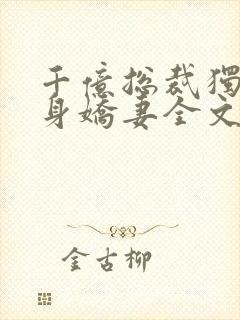 千億總裁獨
身嬌妻全文
金古柳